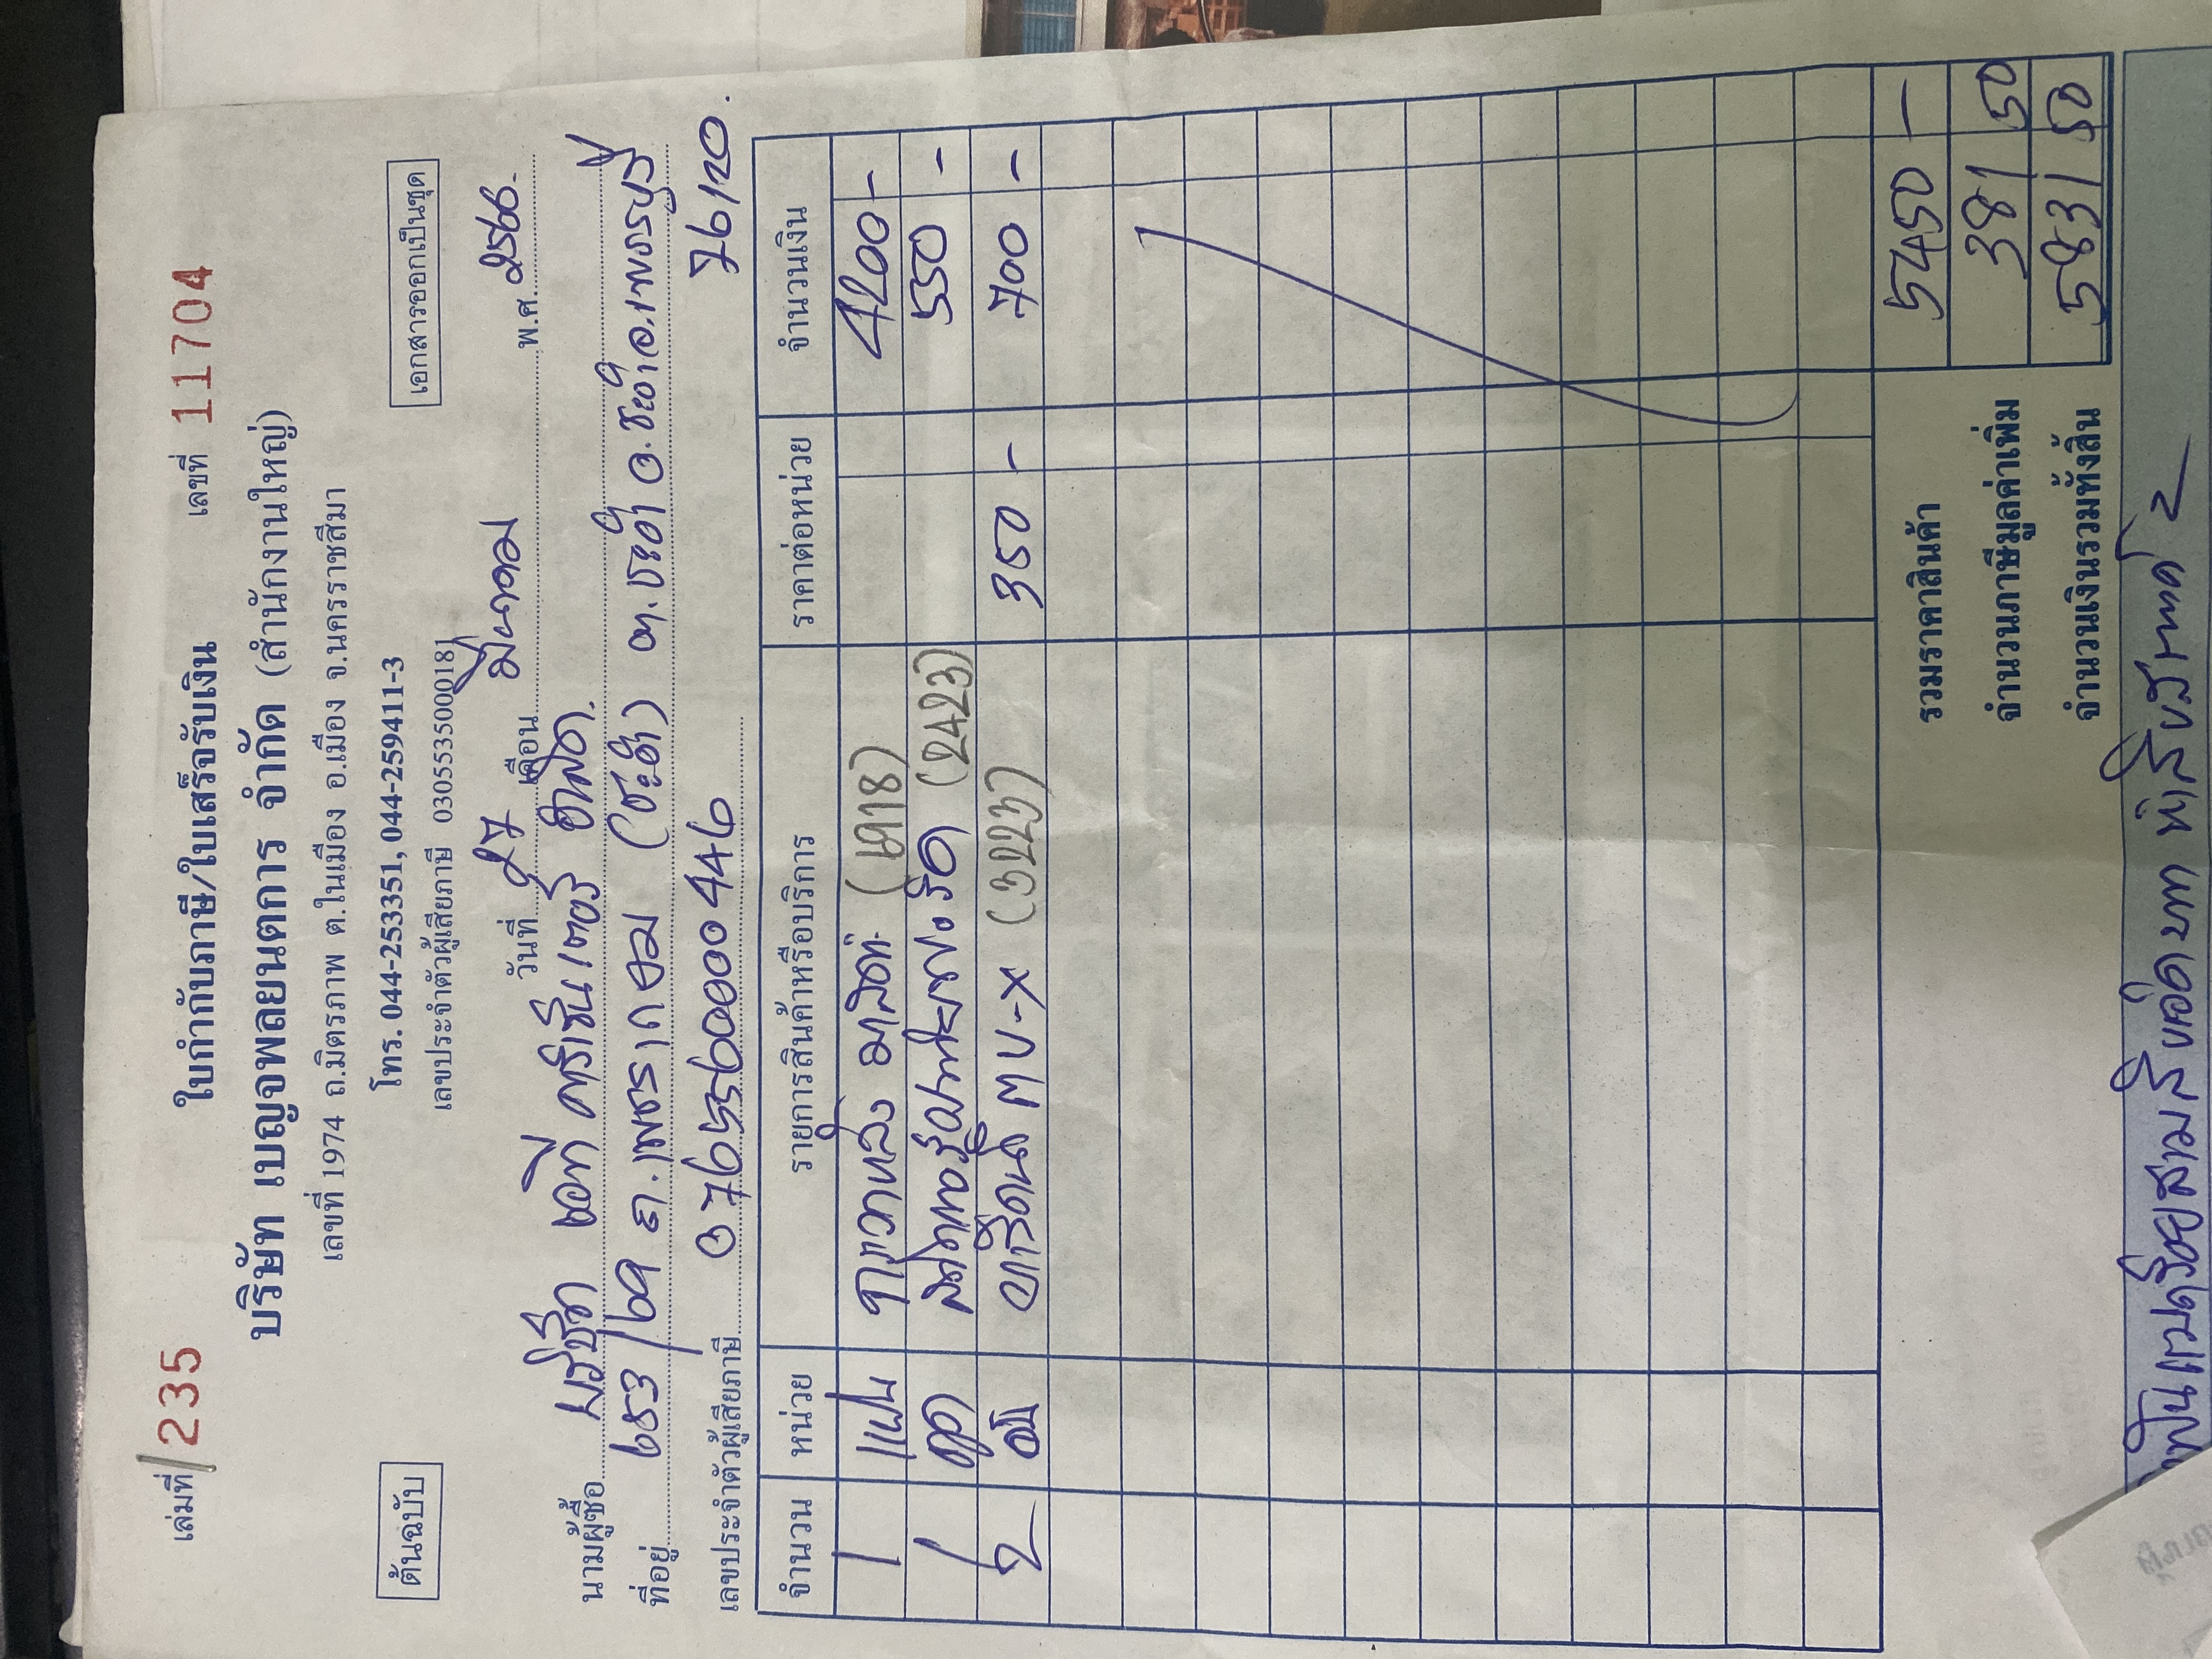 เล่มที่ / 235 ใบกำกับภาษี/ใบเสร็จรับเงิน เลขที่ 11704
บริษัท เบญจพลยนตการ จำกัด (สำนักงานใหญ่)
เลขที่ 1974 ถ.มิตรภาพ ต.ในเมือง อ.เมือง จ.นครราชสีมา
ต้นฉบับ โทร. 044-253351, 044-259411-3 เอกสารออกเป็นชุด
เลขประจำตัวผู้เสียภาษี 0305535000181
วันที่ 27 เดือน มีนาคม พ.ศ. 2566.
นามผู้ซื้อ บริษัท เอที
ที่อยู่ 653/69 ถ.เพชรเกษม (ชะอำ) ต.ชะอำ อ.ชะอำ จ.เพชรบุรี
เลขประจำตัวผู้เสียภาษี 0765560000446 76120.
จำนวน หน่วย รายการสินค้าหรือบริการ ราคาต่อหน่วย จำนวนเงิน
1 แผ่น 4200 -
1 ชุด (2423) 550 -
2 MU-X (3223) 350 - 700 -
รวมราคาสินค้า 5450 -
จำนวนภาษีมูลค่าเพิ่ม 381 50
จำนวนเงินรวมทั้งสิ้น 5831 50
พันแปดร้อยสามสิบเอ็ดบาท ห้าสิบสตางค์